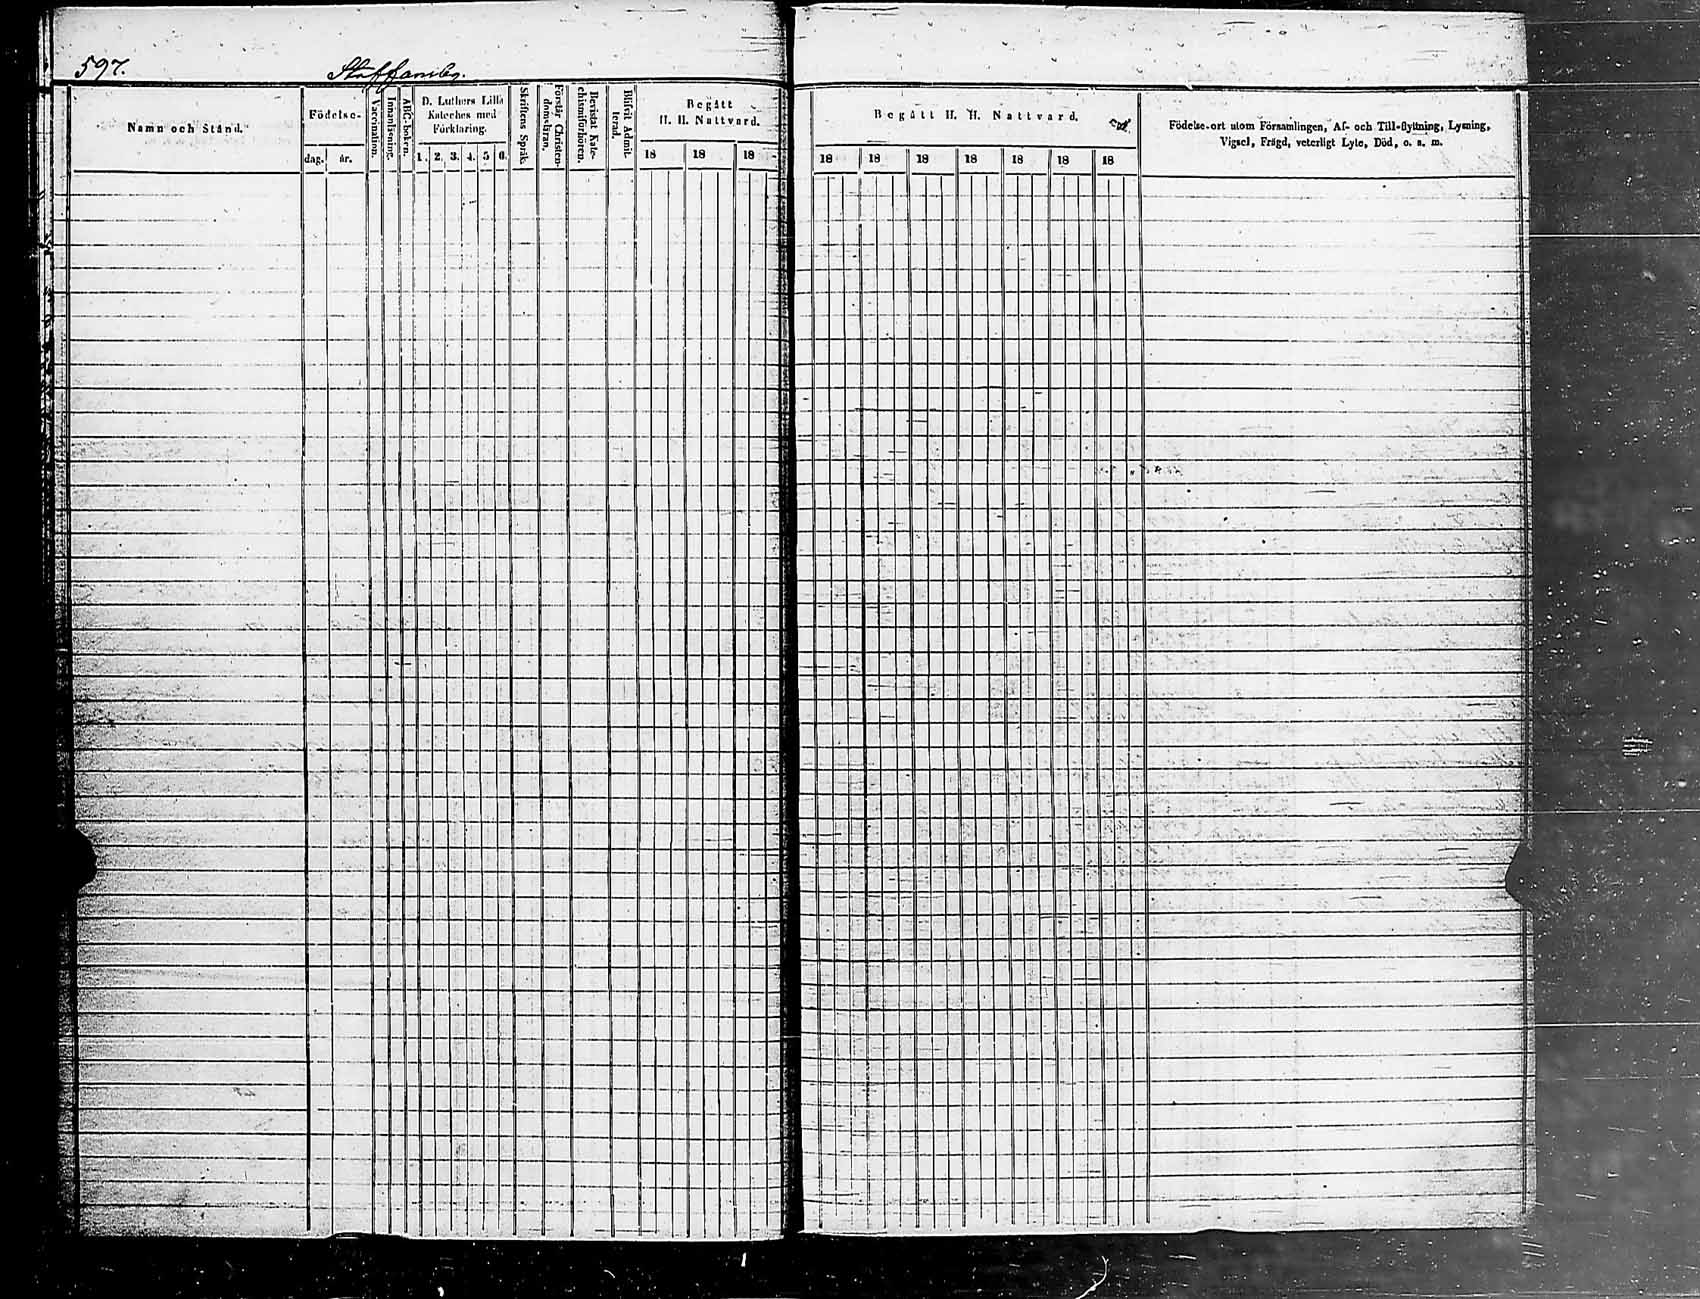 597. Staffansby.
Namn och Stånd.
Födelse-
dag. år.
Vaccination.
Innanläsning.
ABC-boken.
D. Luthers Lilla
Kateches med
Förklaring.
1. 2. 3. 4. 5 6.
Skriftens Språk.
Förstår Christen-
domsläran.
Bevistat Kate-
chismiförhören.
Blifvit Admit-
terad.
Begått
H. H. Nattvard.
18 18 18
Begått H. H. Nattvard.
18 18 18 18 18 18 18
Födelse-ort utom Församlingen, Af- och Till-flyttning, Lysning,
Vigsel, Frägd, veterligt Lyte, Död, o. s. m.